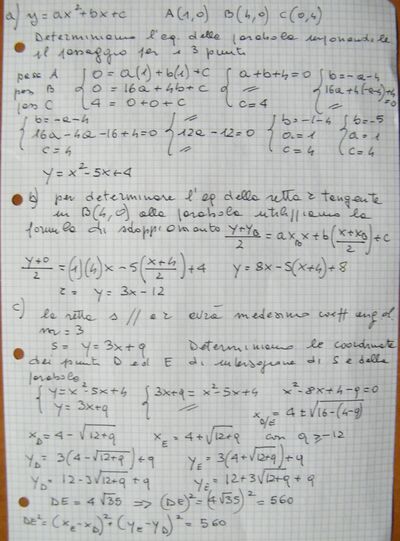 a) y = ax²+bx+c A(1,0) B(4,0) C(0,4)
Determiniamo l'eq. della parabola imponendole
il passaggio per i 3 punti
pass A { 0 = a(1)+b(1)+c { a+b+4=0 { b=-a-4
per B { 0 = 16a+4b+c { // { 16a+4(-a-4)+4=0
per C { 4 = 0+0+c { c=4 { //
{ b=-a-4 { // { b=-1-4 { b=-5
{ 16a-4a-16+4=0 { 12a-12=0 { a=1 { a=1
{ c=4 { // { c=4 { c=4
y = x²-5x+4
b) per determinare l'eq della retta r tangente
in B(4,0) alla parabola utilizziamo la
formula di sdoppiamento (y+y_B)/2 = a x_B x + b((x+x_B)/2) + c
(y+0)/2 = (1)(4)x - 5((x+4)/2) + 4 y = 8x-5(x+4)+8
r = y = 3x-12
c) la retta s // a r avrà medesimo coeff angol
m = 3
s = y = 3x+q Determiniamo le coordinate
dei punti D ed E di intersezione di s e della
parabola
{ y=x²-5x+4 { 3x+q = x²-5x+4 x²-8x+4-q=0
{ y=3x+q { // x_D/E = 4±√(16-(4-q))
x_D = 4-√(12+q) x_E = 4+√(12+q) con q ≥ -12
y_D = 3(4-√(12+q))+q y_E = 3(4+√(12+q))+q
y_D = 12-3√(12+q)+q y_E = 12+3√(12+q)+q
DE = 4√35 ⇒ (DE)² = (4√35)² = 560
DE² = (x_E-x_D)²+(y_E-y_D)² = 560